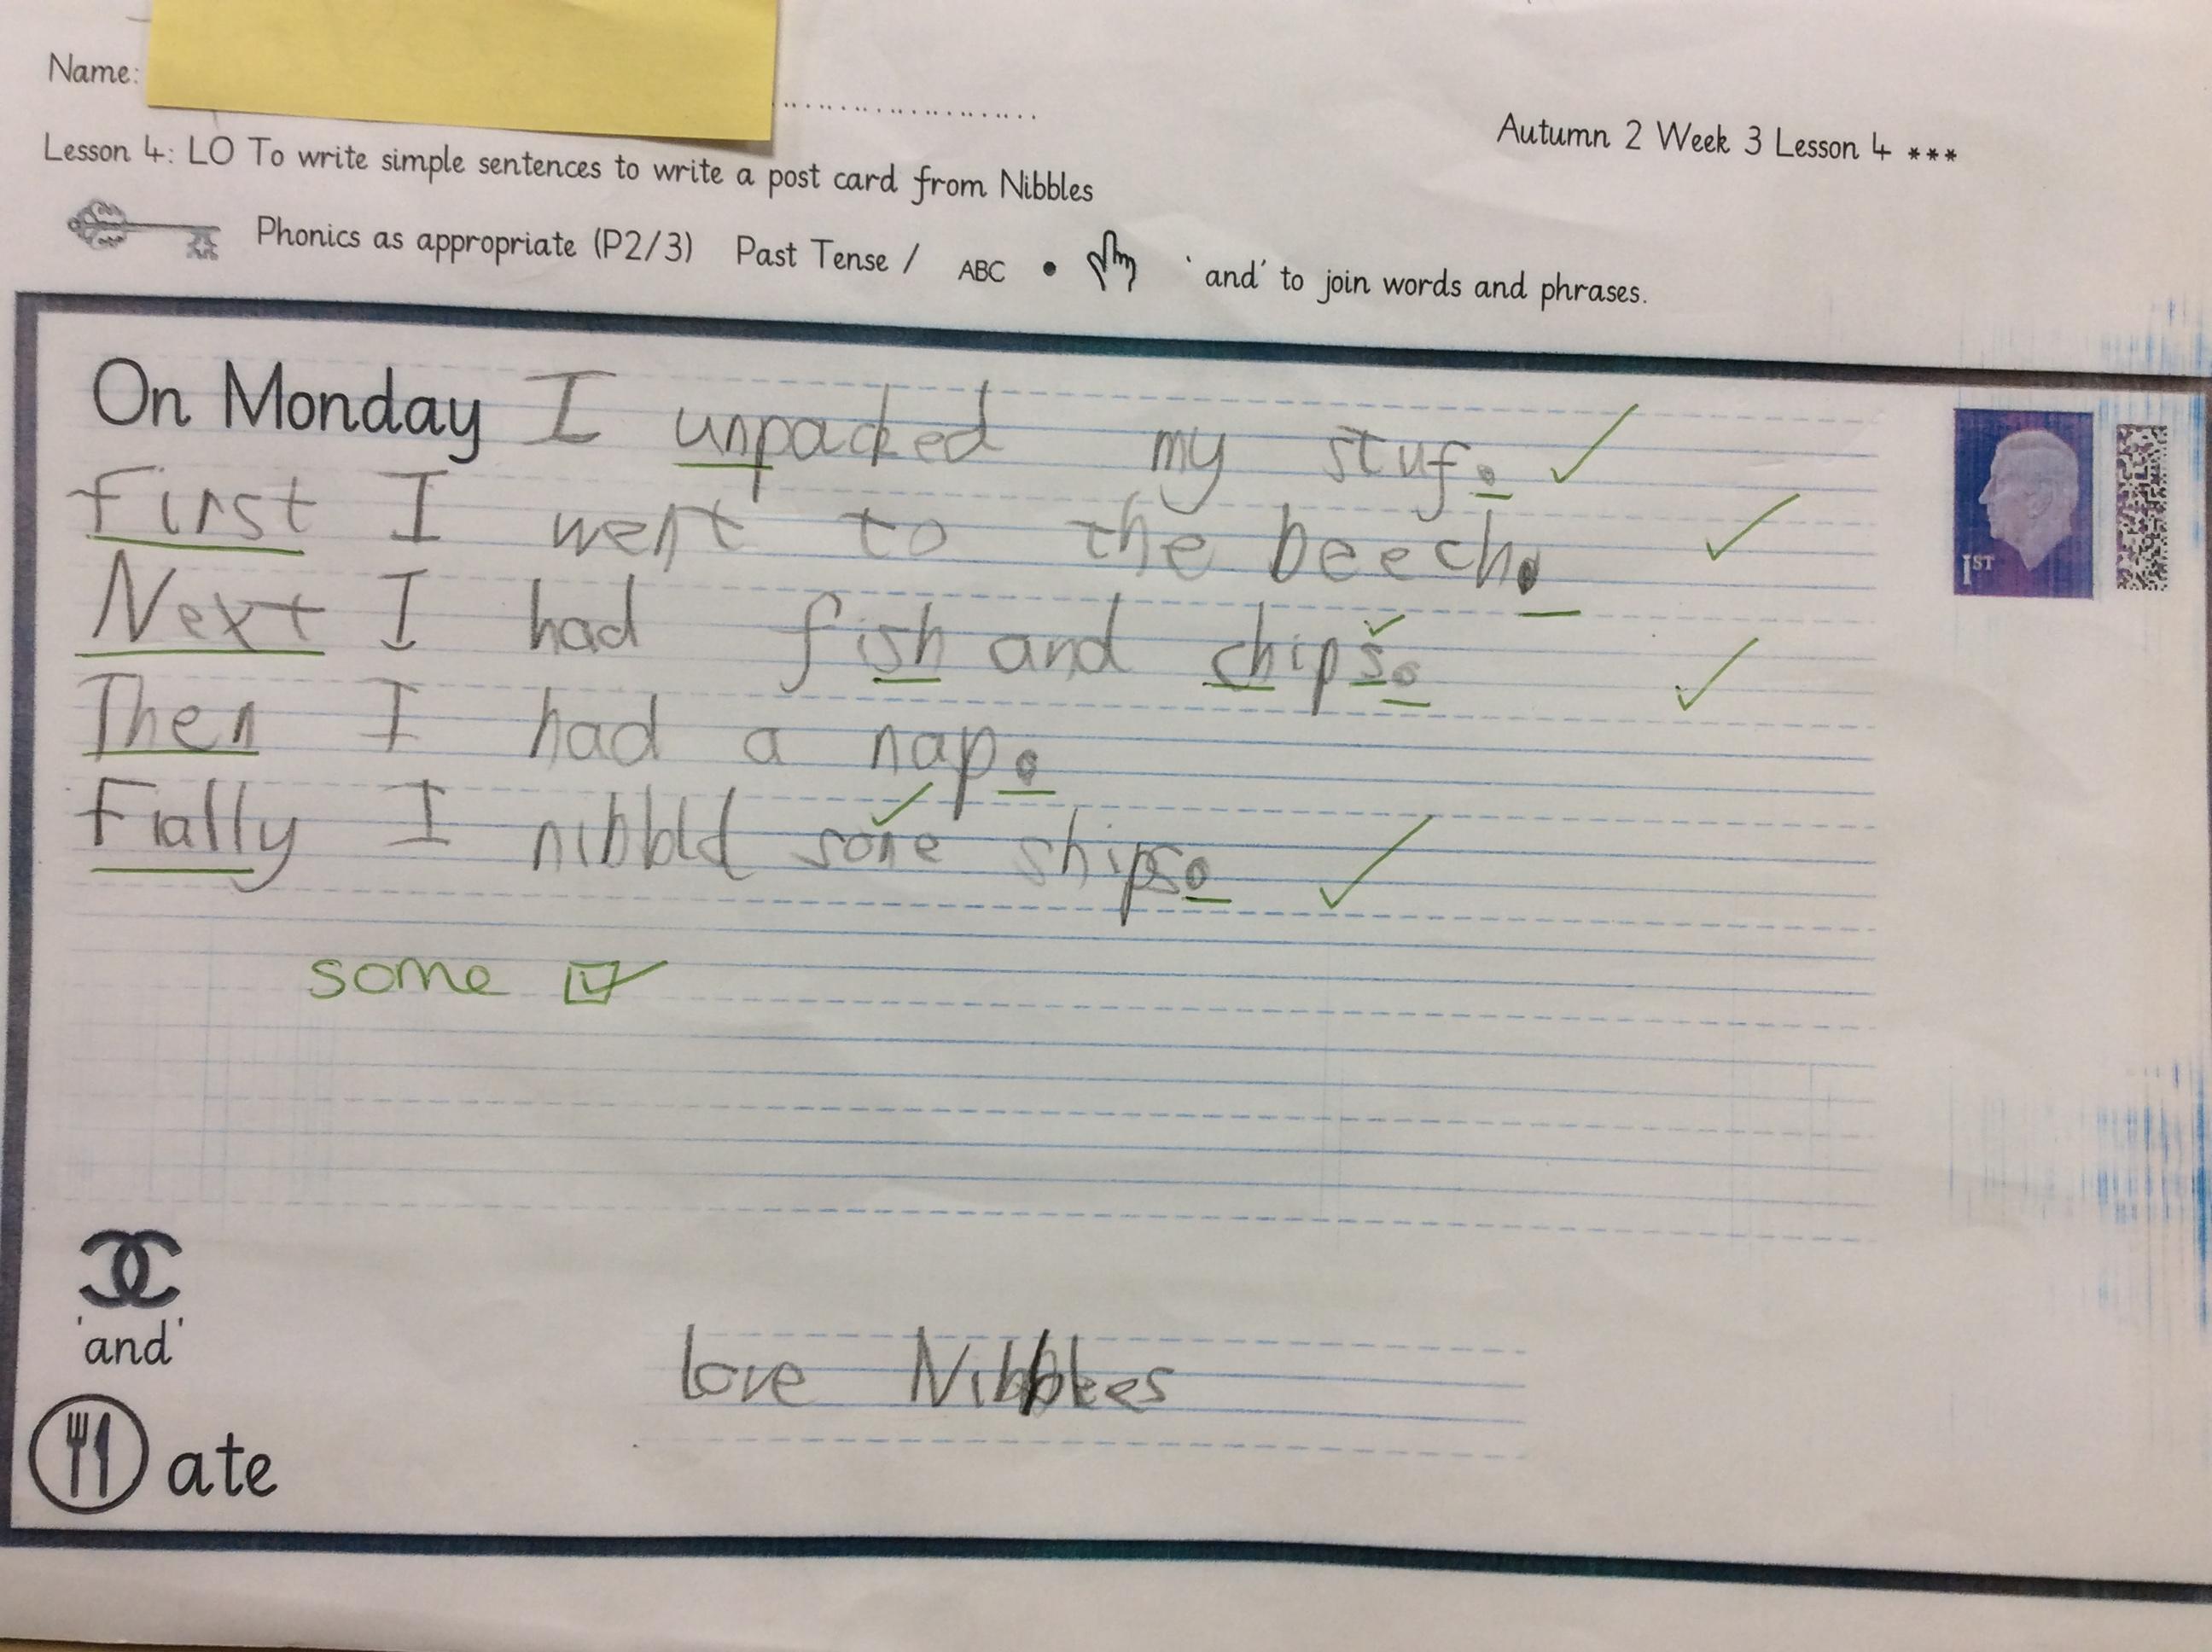 Name:
Autumn 2 Week 3 Lesson 4 ***
Lesson 4: LO To write simple sentences to write a post card from Nibbles
Phonics as appropriate (P2/3) Past Tense / ABC • 'and' to join words and phrases.
On Monday I unpacked my stuf.
First I went to the beech.
Next I had fish and chips.
Then I had a nap.
Fially I nibbld sone ships.
1ST
some
'and'
love Nibbles
ate